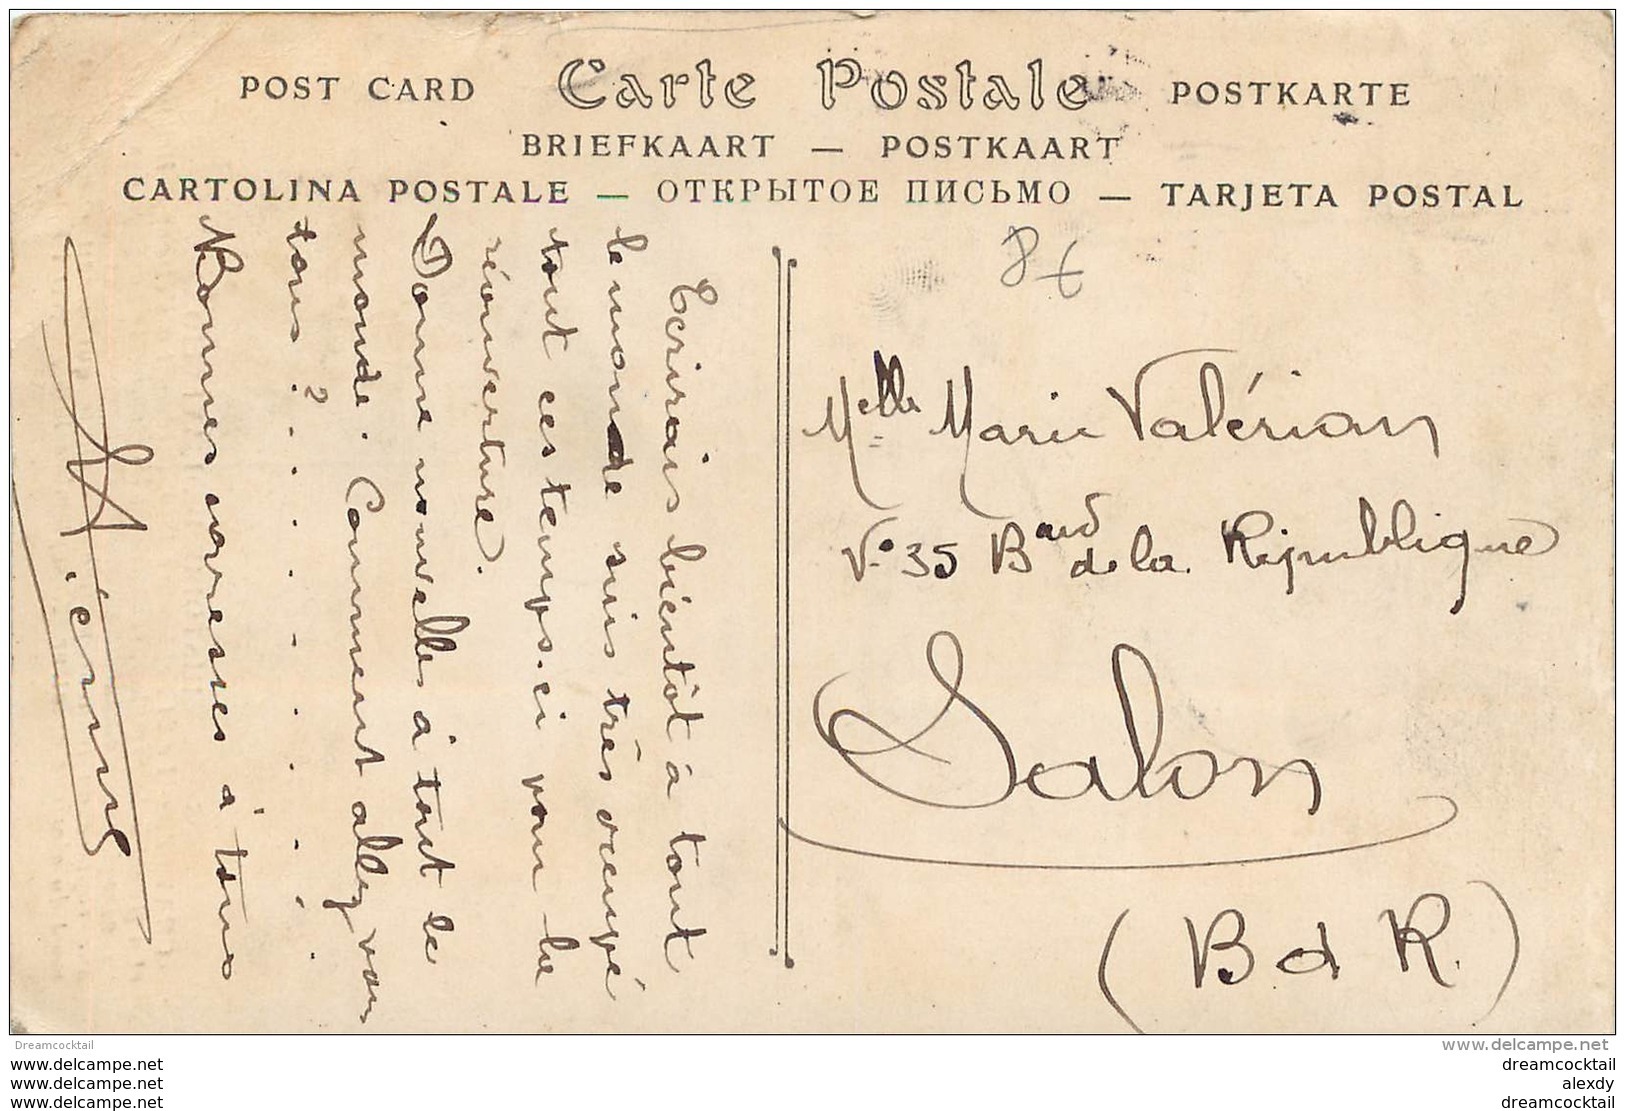 POST CARD Carte Postale POSTKARTE
BRIEFKAART — POSTKAART
CARTOLINA POSTALE — ОТКРЫТОЕ ПИСЬМО — TARJETA POSTAL
Ecrirais bientôt à tout
le monde suis très occupé
tout ces temps-ci pour la
réouverture.
Donne nouvelles à tout le
monde. Comment allez vous
tous ? . . . . . . . . .
Bonnes caresses à tous
8f
Melle Marie Valérian
N° 35 Bard de la République
Salon
(B d R.)
Dreamcocktail
www.delcampe.net
www.delcampe.net
www.delcampe.net
www.delcampe.net
dreamcocktail
alexdy
dreamcocktail